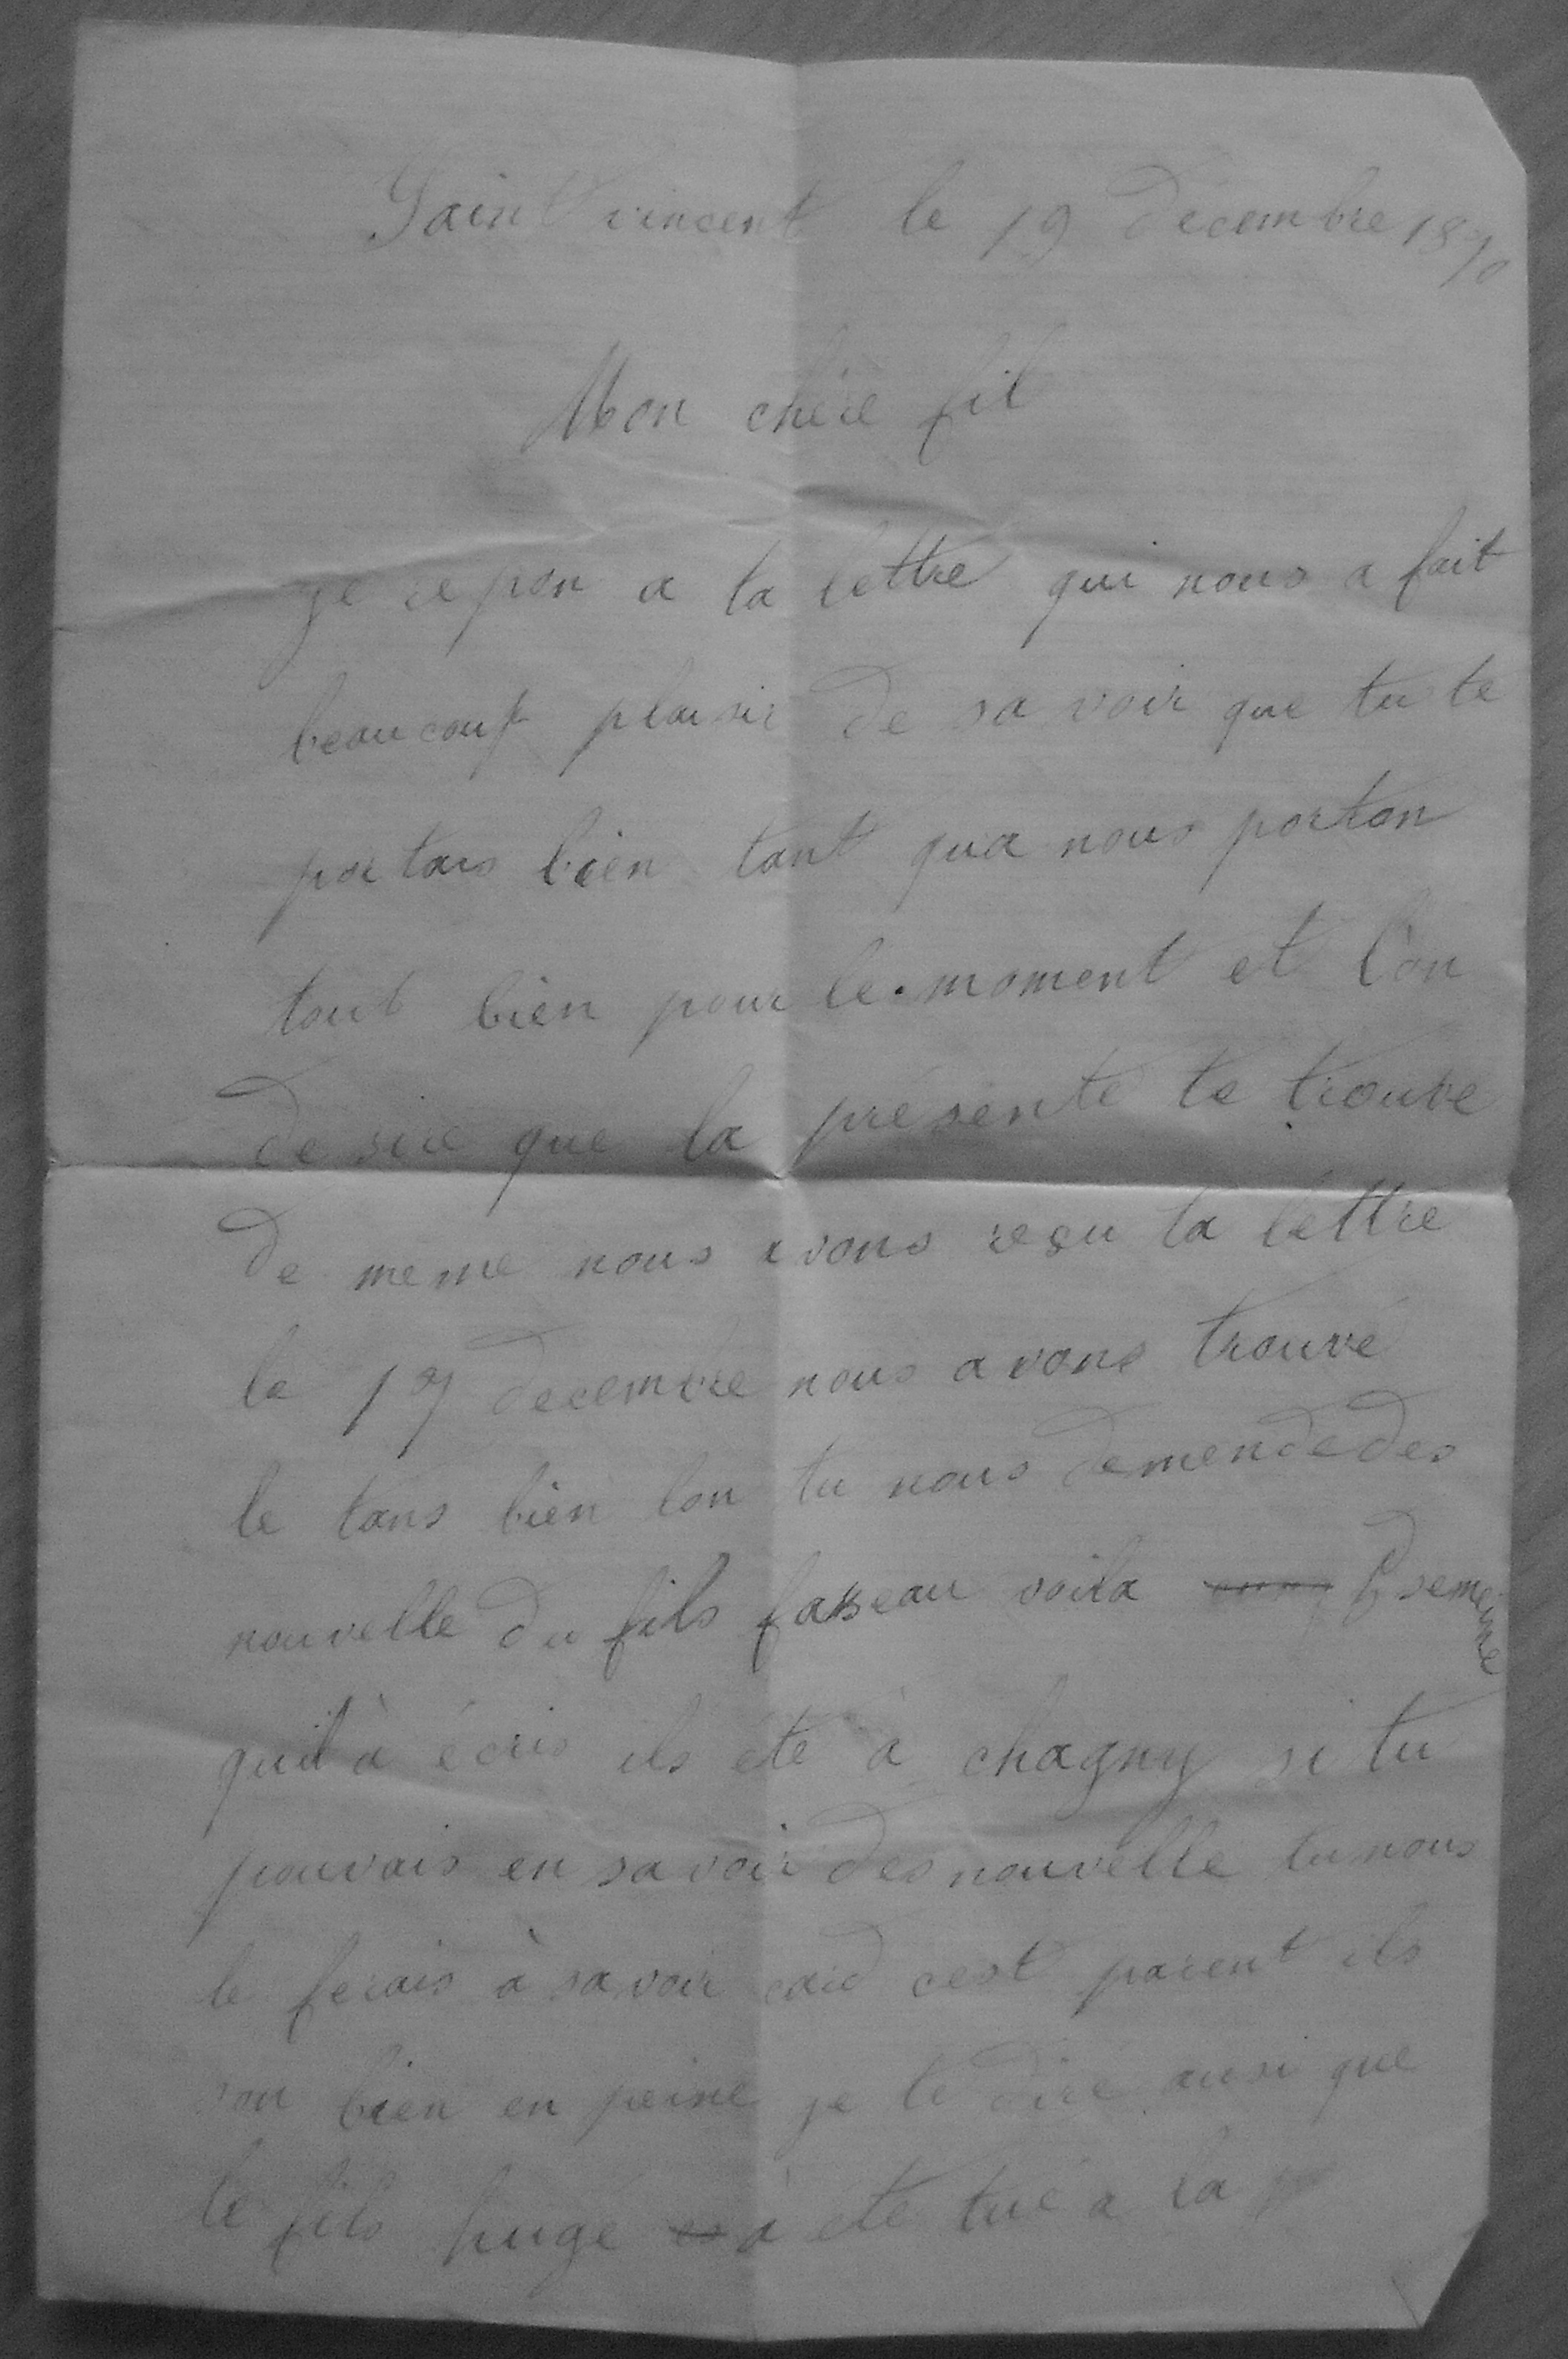 Saint vincent le 19 décembre 1870
Mon chère fil
je repon a ta lettre qui nous a fait
beaucoup plaisir de savoir que tu te
portais bien tant qua nous porton
tout bien pour le moment et l'on
desire que la présente te trouve
de meme nous avons reçu ta lettre
le 17 decembre nous avons trouvé
le tans bien lon tu nous demende des
nouvelle du fils voila semeine
quil à écris ils été à chagny si tu
pouvais en savoir des nouvelle tu nous
le ferais à savoir card cest parent ils
son bien en peine je te dire ausi que
le fils hugé a été tué a la